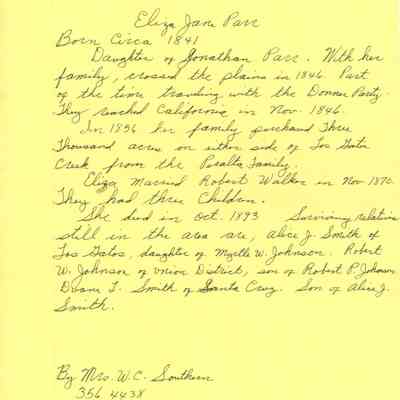 Eliza Jane Parr
Born Circa 1841
Daughter of Jonathan Parr. With her
family, crossed the plains in 1846. Part
of the time traveling with the Donner Party.
They reached California in Nov. 1846.
In 1856 her family purchased Three
Thousand acres on either side of Los Gatos
Creek from the Peralta Family.
Eliza Married Robert Walker in Nov 1870.
They had three Children.
She died in Oct. 1893 Surviving relatives
still in the area are, Alice J. Smith of
Los Gatos, daughter of Myrtle W. Johnson. Robert
W. Johnson of Union District, son of Robert P. Johnson
Duane T. Smith of Santa Cruz. Son of Alice J.
Smith.
By Mrs. W.C. Southern
356 4438